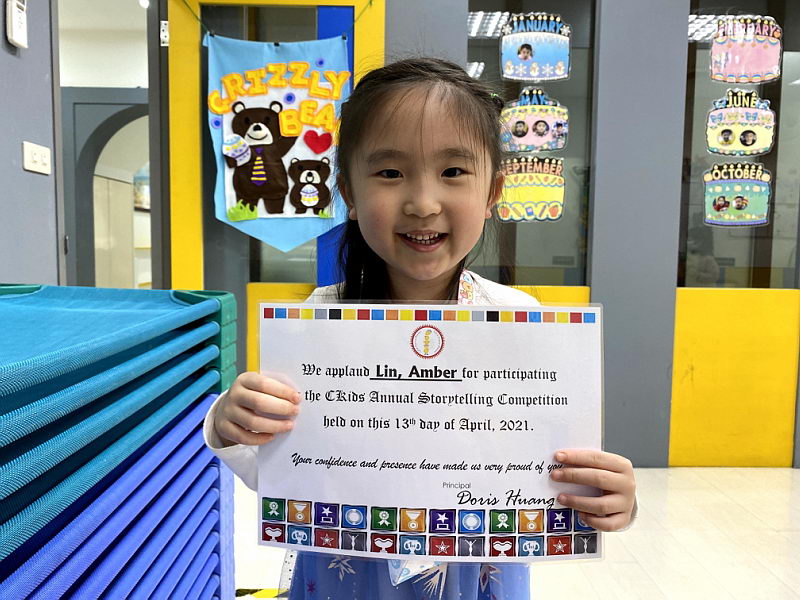 GRIZZLY
BEAR
JANUARY
MAY
SEPTEMBER
FEBRUARY
JUNE
OCTOBER
We applaud Lin, Amber for participating
the CKids Annual Storytelling Competition
held on this 13th day of April, 2021.
Your confidence and presence have made us very proud of you
Principal
Doris Huang